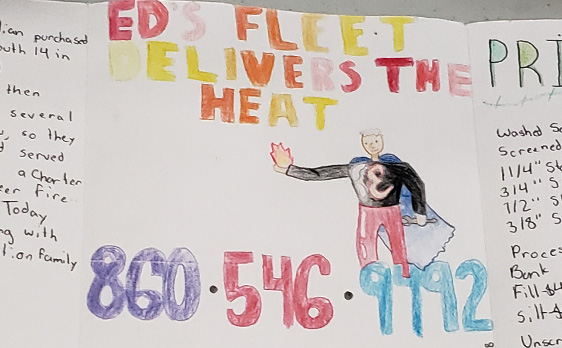 ian purchased
outh 14 in
then
several
, so they
d served
a Charter
eer fire
Today
ng with
tion family
ED'S FLEET
DELIVERS THE
HEAT
860·546·9992
PRI
Washed S
Screened
1 1/4" St
3/4" S
1/2" S
3/8" S
Proces
Bank
Fill $4
Silt $
Unscr